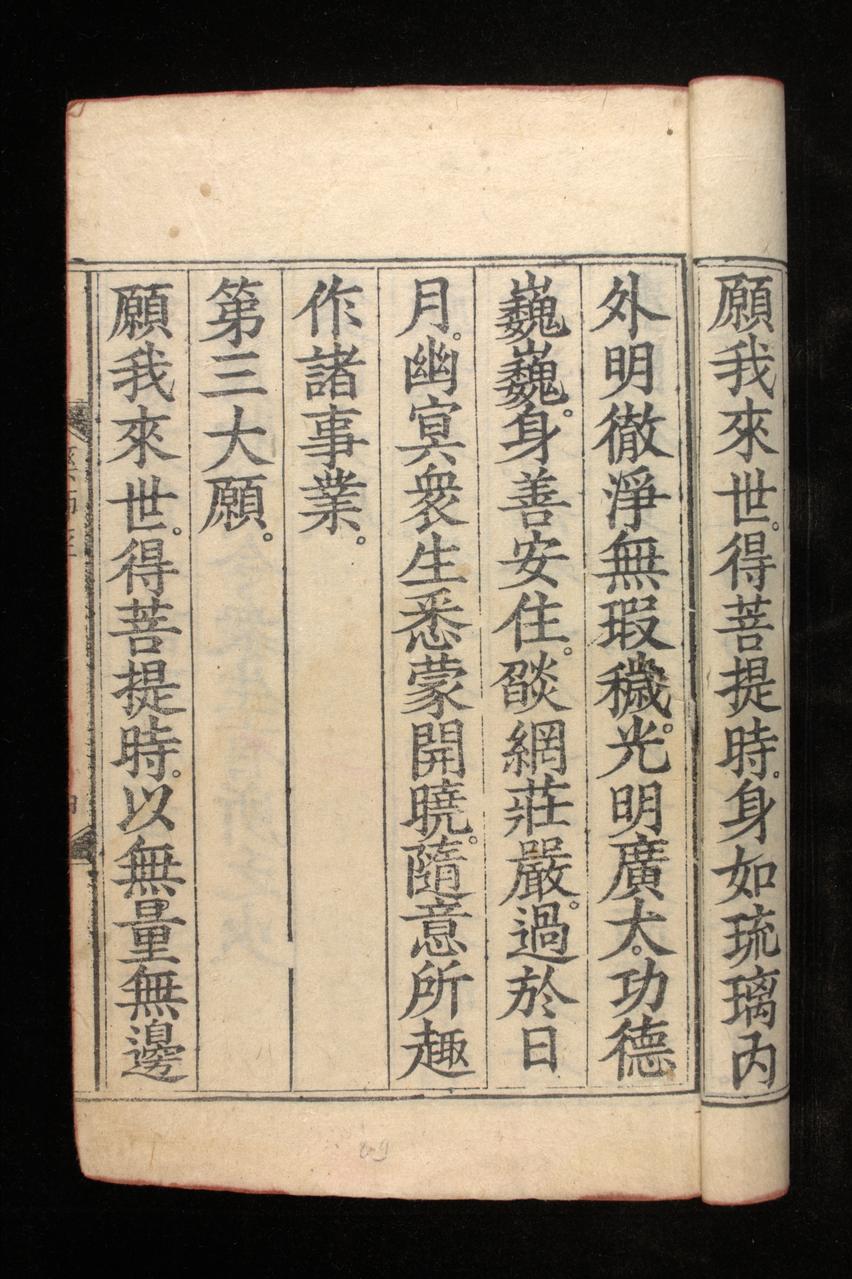 願我來世。得菩提時。身如琉璃內
外明徹淨無瑕穢。光明廣大。功德
巍巍。身善安住。燄網莊嚴。過於日
月。幽冥衆生悉蒙開曉。隨意所趣
作諸事業。
第三大願。
願我來世。得菩提時。以無量無邊